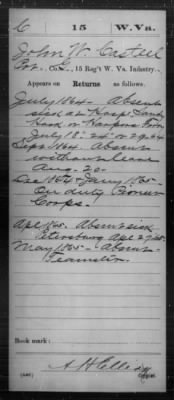 C 15 W. Va.
John W. Casteel
Pvt., Co. G, 15 Reg't W. Va. Infantry.
Appears on Returns as follows:
July 1864 - Absent
sick at Hosp. Sandy
Hook or Harpers Ferry
July 18, 24 or 29, 64
Sept 1864 Absent
without leave
Aug. 20
Dec 1864 & Jany 1865 -
On duty Pioneer
Corps.
Apl 1865. Absent sick
Petersburg Apl 2, 65.
May 1865 - Absent
Teamster.
Book mark:
Copyist.